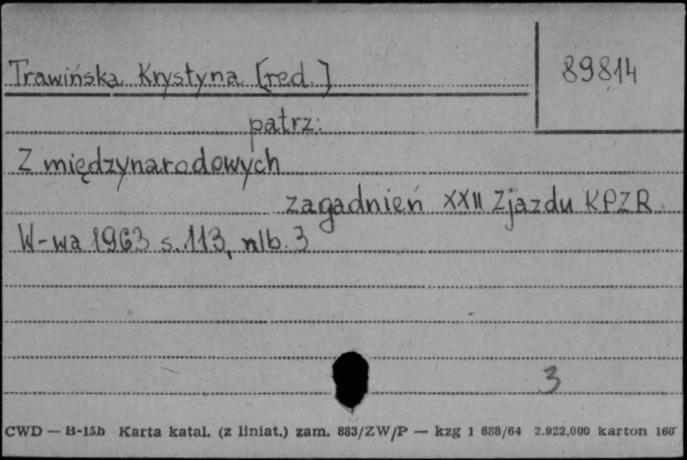 89814
Trawińska Krystyna [red.]
patrz:
Z międzynarodowych
zagadnień XXII Zjazdu KPZR
W-wa 1963 s. 113, nlb. 3
3
CWD — B-15b Karta katal. (z liniat.) zam. 883/ZW/P — kzg 1 688/64 2.922.000 karton 160